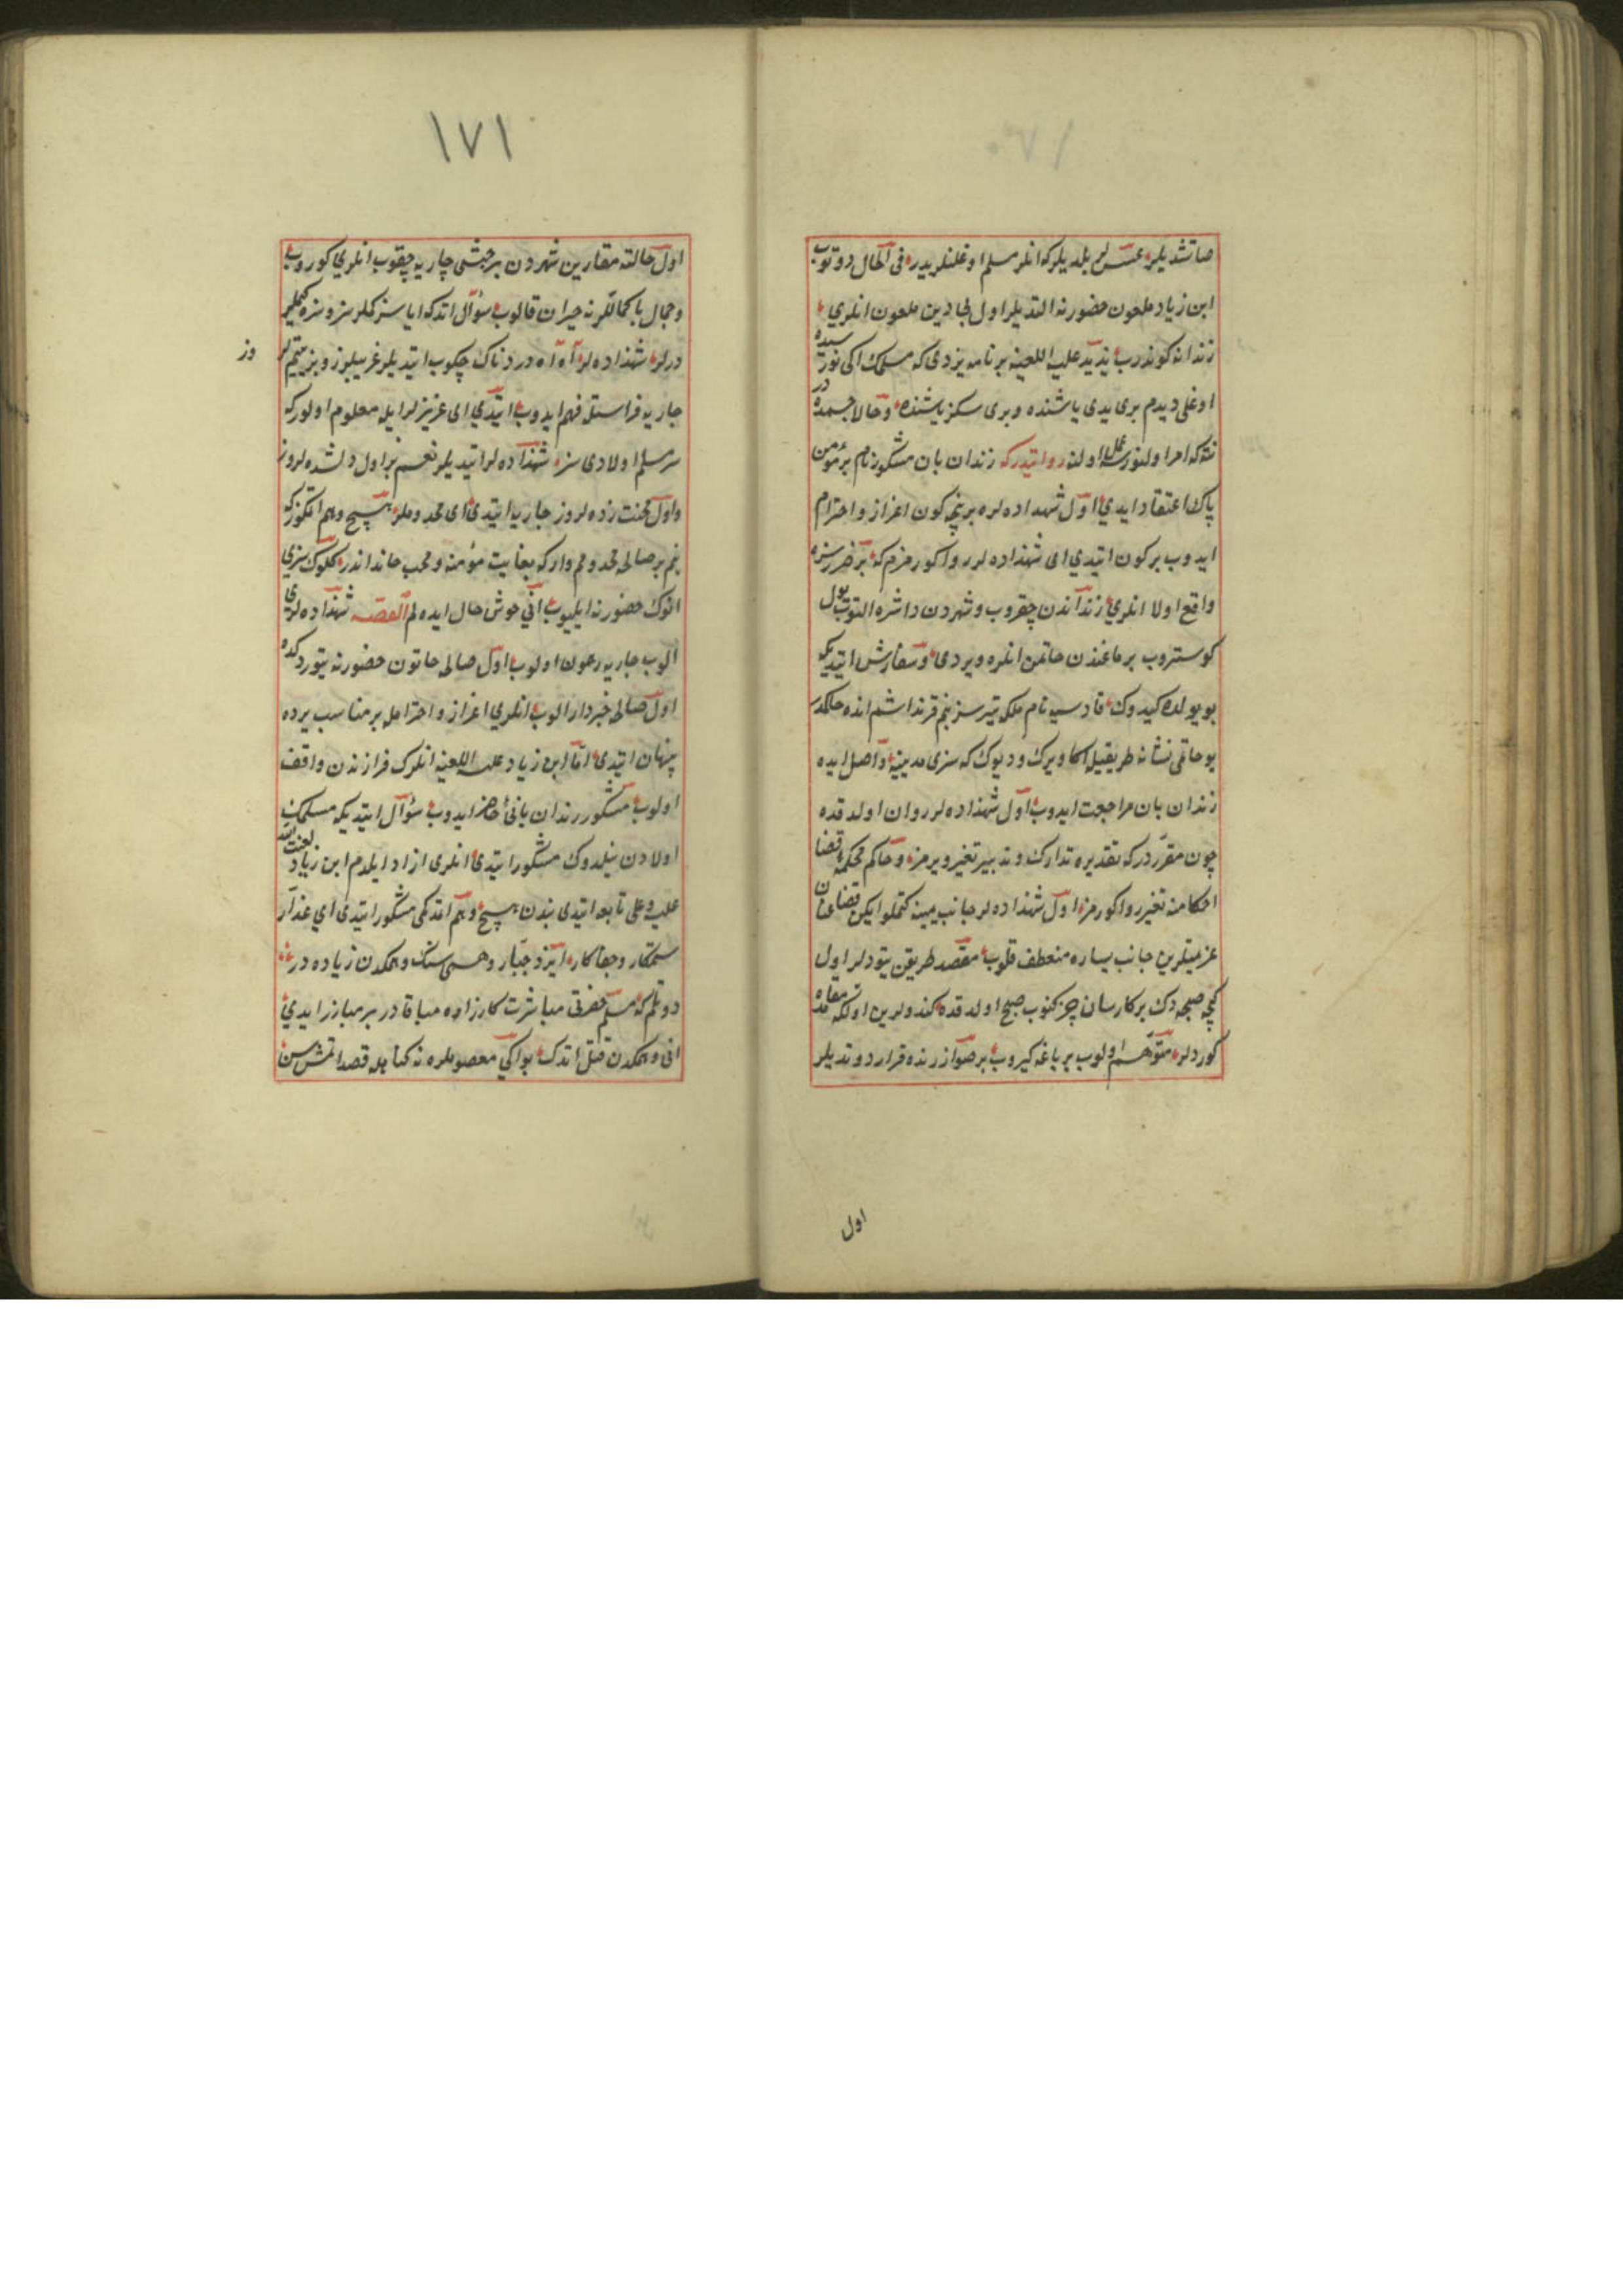 ١٧٠
صاتشدیلر عسس لر بلدیلرکه انلر مسلم اوغلنلریدر فی الحال دوتوب
ابن زیاد ملعون حضورنه التدیلر اول بی دین ملعون انلری
زندانه کوندروب یزید علیه اللعنه بر نامه یزدی که مسلمک ایکی نورسیده
اوغلی دیدم بری یدی یاشنده و بری سکز یاشنده و حالا حبسمده در
نته که امر اولنور عمل اولنه روایتدرکه زندان بان مشکور نام بر مؤمن
پاک اعتقاد ایدی اول شهزاده لره بر نچه کون اعزاز و احترام
ایدوب بر کون ایتدی ای شهزاده لر روا کورمزم که بر ضرر سزه
واقع اولا انلری زنداندن چقروب و شهردن داشره التوب یول
کوستروب برماغندن خاتمن انلره ویردی و سفارش ایتدیکه
بو یولده کیدوک قادسیه نام ملکه یتیرسز بنم قرنداشم انده حاکمدر
بو خاتمی نشانه طریقیله اکا ویرک و دیوک که سزی مدینیه واصل ایده
زندان بان مراجعت ایدوب اول شهزاده لر روان اولدقده
چون مقرردرکه تقدیره تدارک و تدبیر تغییر ویرمز و حاکم محکمه قضا
احکامنه تغیر روا کورمز اول شهزاده لر جانب یمینه کتملو ایکن قضا عنان
عزیمتلرین جانب یساره منعطف قلوب مقصد طریقن یتوردلر اول
کیجه صبحه دک بر کارسان چزکنوب صبح اولدقده کندولرین اولکه مقامده
کوردلر متوهم اولوب بر باغه کیروب بر صو ازرنده قرار دوتدیلر
اول
١٧١
اول حالته مقارین شهردن بر حبشی جاریه چقوب انلری کوروب
و جمال باکماللرنه حیران قالوب سؤال اتدکه ایا سز کملرسز و سزه کملر
درلر شهزاده لر آه آه دردناک چکوب ایتدیلر غریبلروز و بز یتیملر
وز
جاریه فراستله فهم ایدوب ایتدی ای عزیزلر ایله معلوم اولور که
سز مسلم اولادی سز شهزاده لر ایتدیلر نعم بز اول دلشده لروز
و اول محنت زده لروز جاریه ایتدی ای مخدوملر هیچ وهم اتمکوز که
بنم بر صالحه مخدومم وارکه بغایت مؤمنه و محب خانداندر کلوک سزی
انوک حضورنه ایلیوب انی خوش حال ایده لم القصه شهزاده لری
الوب جاریه رعون اولوب اول صالحه خاتون حضورنه یتوردکده
اول صالحه خبردار الوب انلری اعزاز و احترامله بر مناسب یرده
پنهان ایتدی اما ابن زیاد علیه اللعنه انلرک فرارزندن واقف
اولوب مشکور زندان بانی حاضر ایدوب سؤال ایتدیکه مسلمک
اولادن نیلدوک مشکور ایتدی انلری ازاد ایلدم ابن زیاد لعنت الله
علیه و علی تابعه ایتدی بندن هیچ وهم اتمدکمی مشکور ایتدی ای غدار
ستمکار و جفاکار ایزد جبار وهمی سنک وهمکدن زیاده در
دوتلم که مسلم حضرتی مباشرت کارزاره مباقادر بر مبارز ایدی
انی وهمکدن قتل اتدک بو ایکی معصوملره نه کناهله قصد اتمش سن